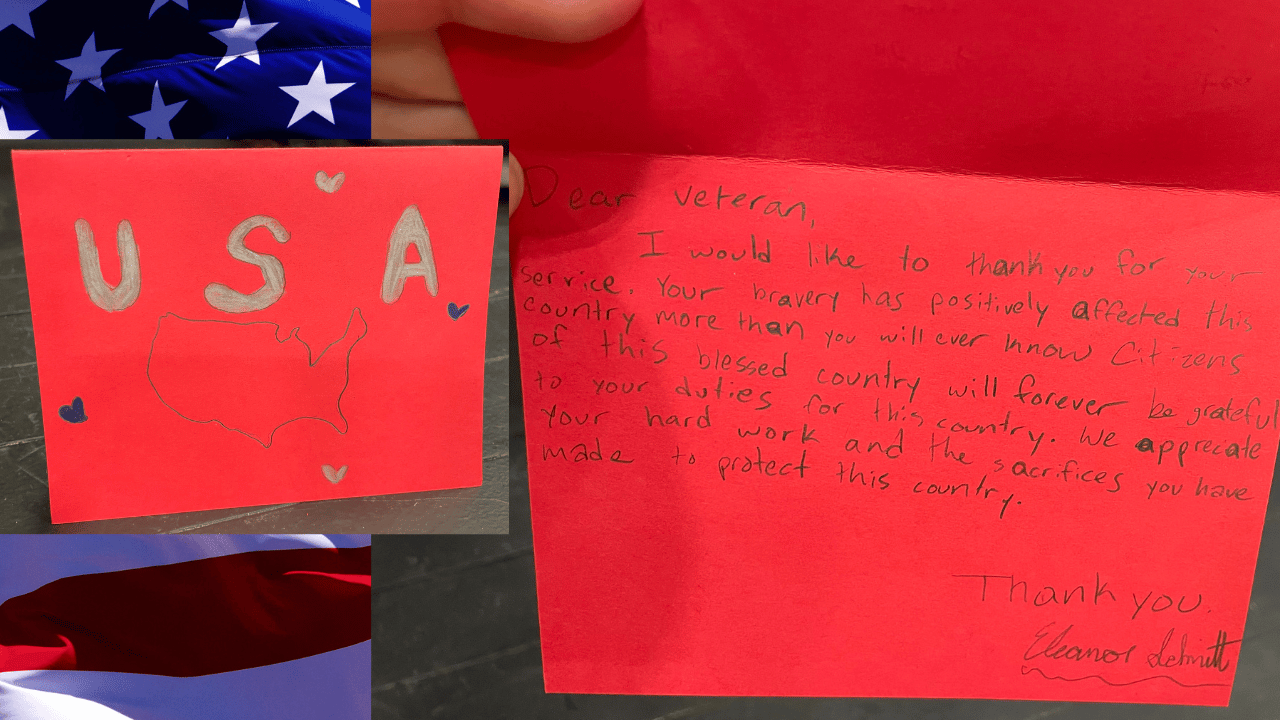 USA
Dear Veteran,
I would like to thank you for your
service. Your bravery has positively affected this
country more than you will ever know Citizens
of this blessed country will forever be grateful
to your duties for this country. We appreciate
your hard work and the sacrifices you have
made to protect this country.
Thank you.
Eleanor Schmitt